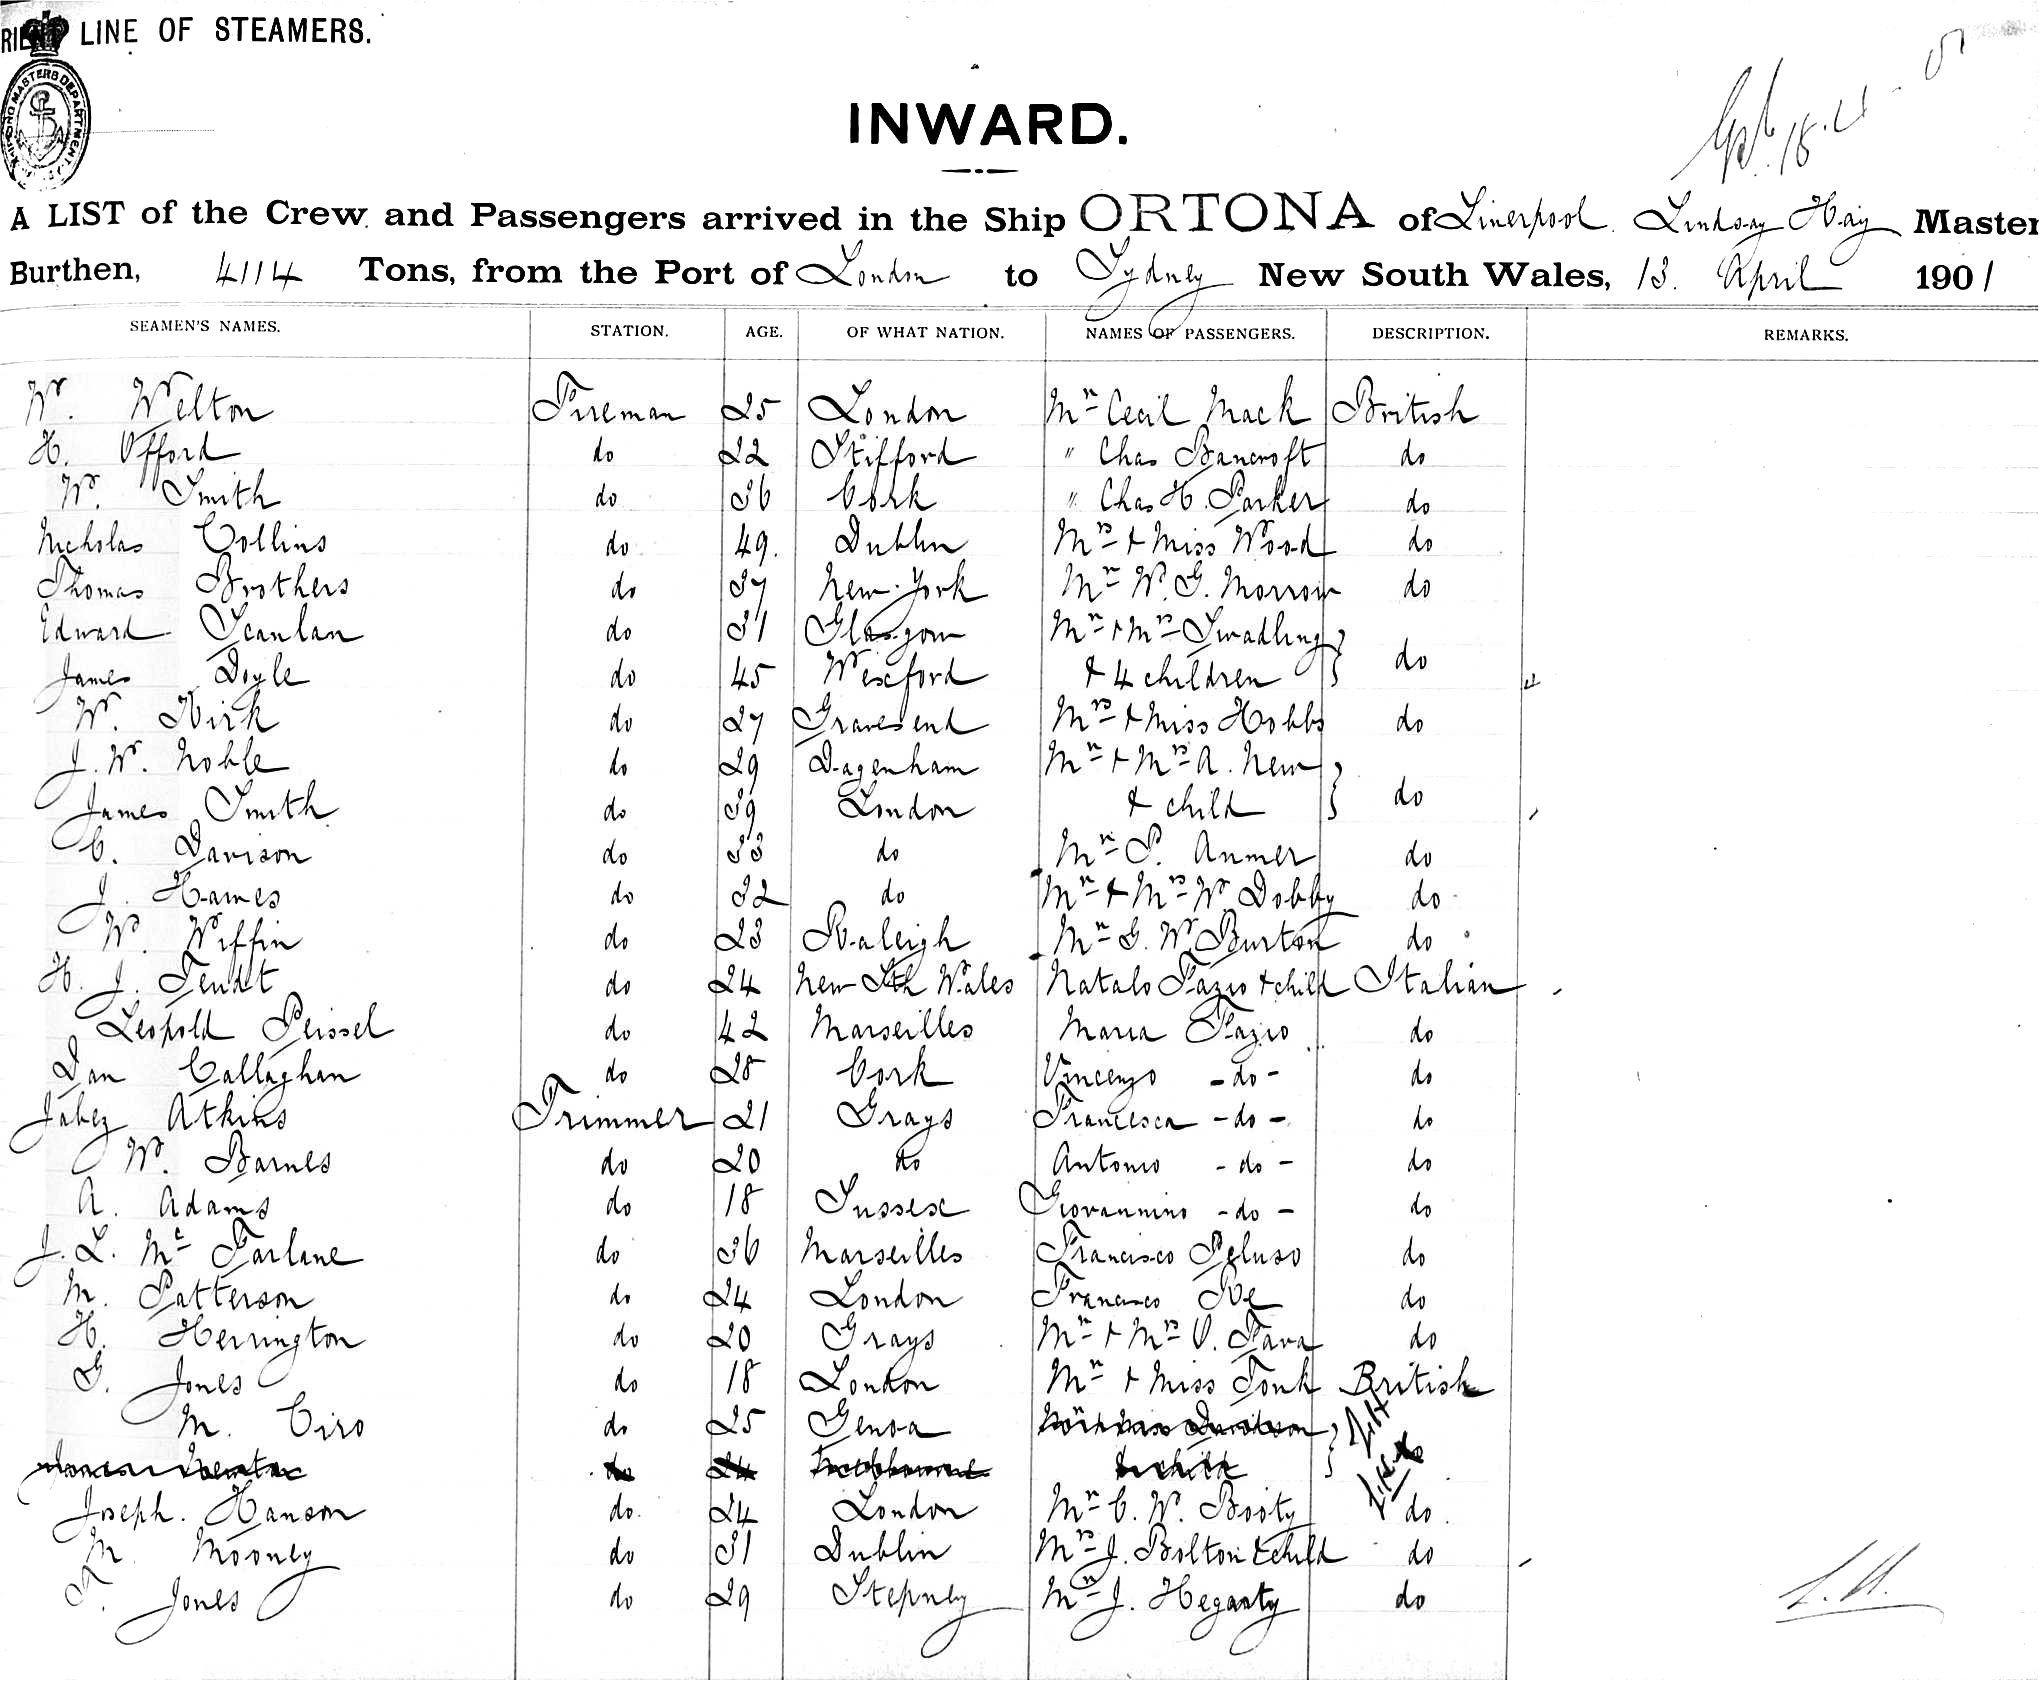 LINE OF STEAMERS.
INWARD.
A LIST of the Crew and Passengers arrived in the Ship ORTONA of Liverpool. Lindsay Hay Master
Burthen, 4114 Tons, from the Port of London to Sydney New South Wales, 13. April 1901
SEAMEN'S NAMES. STATION. AGE. OF WHAT NATION. NAMES OF PASSENGERS. DESCRIPTION. REMARKS.
W. Welton Fireman 25 London Mr Cecil Mack British
H. Offord do 22 Stifford " Chas Bancroft do
W. Smith do 36 Cork " Chas H. Parker do
Nicholas Collins do 49. Dublin Mrs & Miss Wood do
Thomas Brothers do 37 New York Mr W. G. Morrow do
Edward Scanlan do 31 Glasgow Mr & Mrs Swadling }
James Doyle do 45 Wexford & 4 children } do
W. Kirk do 27 Gravesend Mrs & Miss Hobbs do
J. W. Noble do 29 Dagenham Mr & Mrs A. New }
James Smith do 39 London & child } do
C. Davison do 33 do Mr P. Anmer do
J. Hames do 32 do Mr & Mrs W. Dobby do
W. Wiffin do 23 Raleigh Mr G. W. Burton do
H. J. do 24 New Sth Wales Natalo Fazio & child Italian
Leopold Peissel do 42 Marseilles Maria Fazio do
Dan Callaghan do 28 Cork Vincenzo - do - do
Jabez Atkins Trimmer 21 Grays Francesca - do - do
W. Barnes do 20 do Antonio - do - do
A. Adams do 18 Sussex Giovannino - do - do
J. L. Mc Farlane do 36 Marseilles Francisco Peluso do
M. Patterson do 24 London Francisco Re do
H. Herrington do 20 Grays Mr & Mrs V. Fava do
G. Jones do 18 London Mr & Miss Tonk British
M. Ciro do 25 Genoa
do 24 & child
Joseph. Hanson do. 24 London Mr C. W. Booty do.
M. Mooney do 31 Dublin Mrs J. Bolton & child do
T. Jones do 29 Stepney Mr J. Hegarty do
L.H.